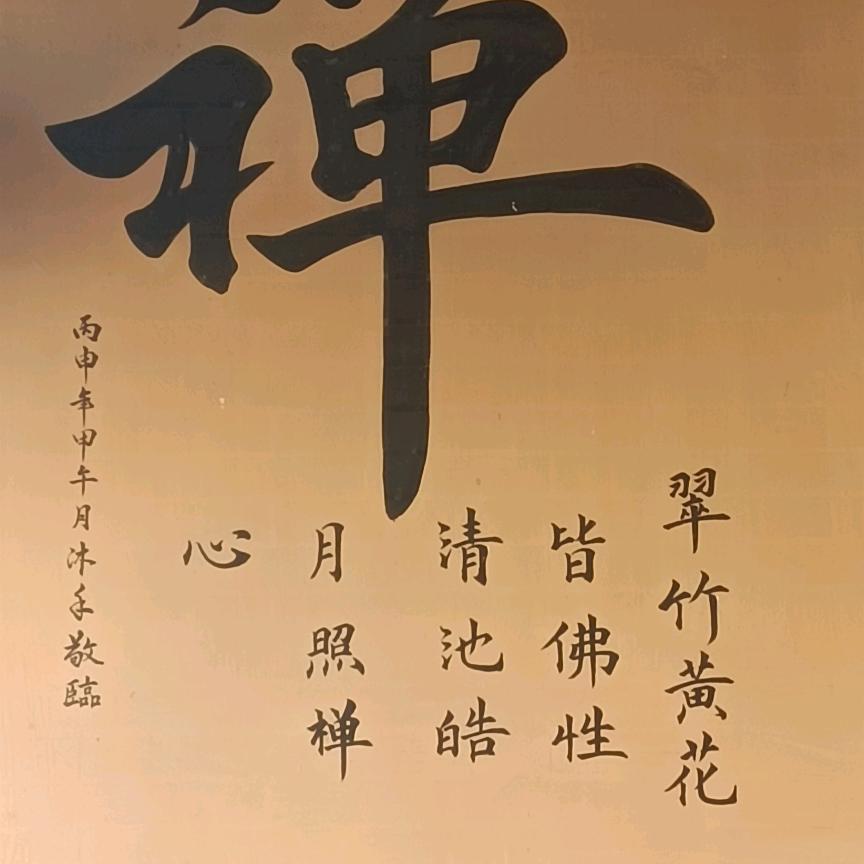 禅
翠竹黃花
皆佛性
清池皓
月照禅
心
丙申年甲午月沐手敬臨